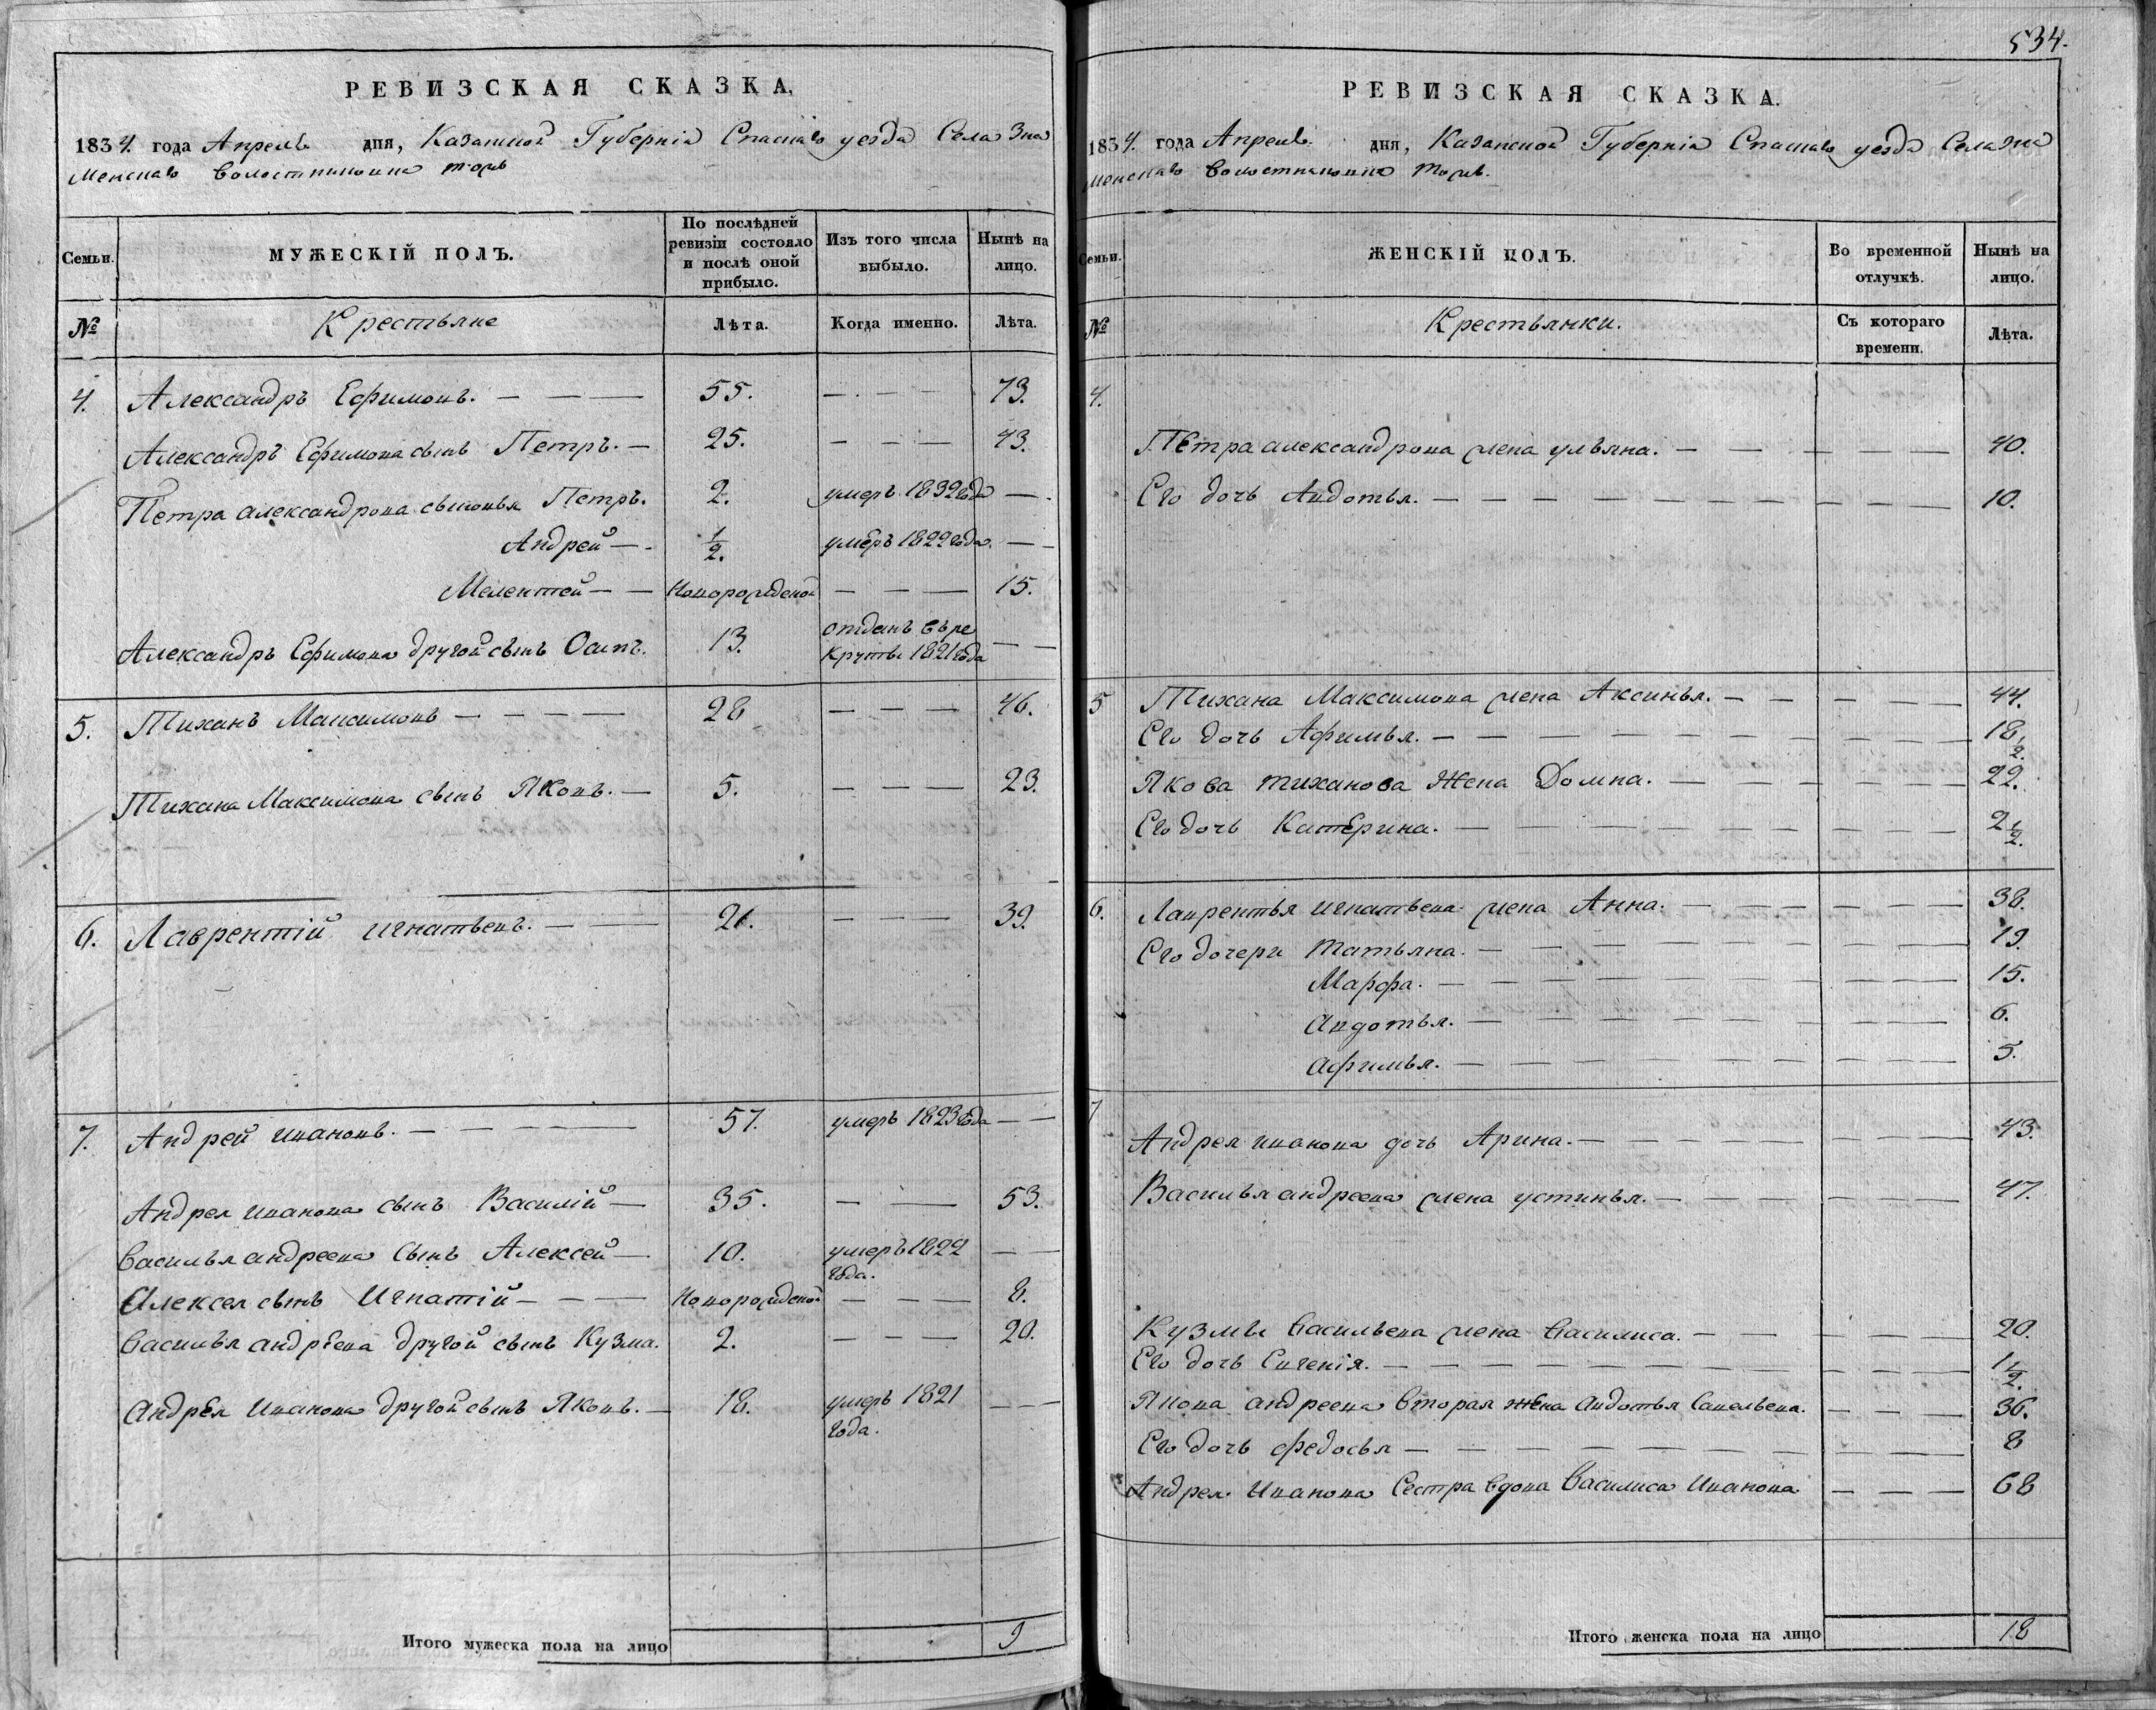 РЕВИЗСКАЯ СКАЗКА,
1834. года Апреля дня, Казанской Губерніи Спаскаго уезда Села Зна
менскаго
Семьи. МУЖЕСКІЙ ПОЛЪ. По послѣдней ревизіи состояло и послѣ оной прибыло. Изъ того числа выбыло. Нынѣ на лицо.
№ Крестьяне Лѣта. Когда именно. Лѣта.
4. Александръ Ефимовъ. — — — 55. — — — 73.
Александръ Ефимова сынъ Петръ. — 25. — — — 43.
Петра александрова сыновья Петръ. 2. умеръ 1832 года — .
Андрей — . 1/2. умеръ 1822 года. — —
Мелентей — — Новорожденой — — — 15.
Александръ Ефимова другой сынъ Осипъ. 13. отданъ въ ре — —
круты 1821 года
5. Тиханъ Максимовъ — — — — 28 — — — 46.
Тихана Максимова сынъ Яковъ. — 5. — — — 23.
6. Лаврентій игнатьевъ. — — 21. — — — 39.
7. Андрей ивановъ. — — — — — 57. умеръ 1823 года — —
Андрея иванова сынъ Василій — 35. — — 53.
Василья андреева Сынъ Алексей — 10. умеръ 1822 — —
года.
Алексея сынъ Игнатій — — — Новорожденой — — — 8.
Василья андреева другой сынъ Кузма. 2. — — — 20.
Андрея Иванова другой сынъ Яковъ. — 18. умеръ 1821 — — —
года.
Итого мужеска пола на лицо 9
534.
РЕВИЗСКАЯ СКАЗКА.
1834. года Апреля. дня, Казанской Губерніи Спаскаго уезда Села Зна
менскаго
Семьи. ЖЕНСКІЙ ПОЛЪ. Во временной отлучкѣ. Нынѣ на лицо.
№ Крестьянки. Съ котораго времени. Лѣта.
4.
Петра александрова жена ульяна. — — — — — 40.
Его дочь Авдотья. — — — — — — — — — — 10.
5 Тихана Максимова жена Аксинья. — — — — — 44.
Его дочь Афимья. — — — — — — — — — — 18 1/2.
Якова тиханова Жена Домна. — — — — — — 22.
Его дочь Катерина. — — — — — — — — — 2 1/2.
6. Лаврентья игнатьева жена Анна. — — — — — — — 38.
Его дочери татьяна. — — — — — — — — — 19.
Марфа. — — — — — — — — — 15.
авдотья. — — — — — — — — — 6.
афимья. — — — — — — — — — 5.
7
Андрея иванова дочь Арина. — — — — — — — — 43.
Василья андреева жена устинья. — — — — — — 47.
Кузмы васильева жена василиса. — — — — — 20.
Его дочь Евгенія. — — — — — — — — — — 1/2.
Якова андреева вторая жена авдотья савельева. — — — 36.
Его дочь федосья — — — — — — — — — 8
Андрея Иванова Сестра вдова василиса Иванова — — — 68
Итого женска пола на лицо 18